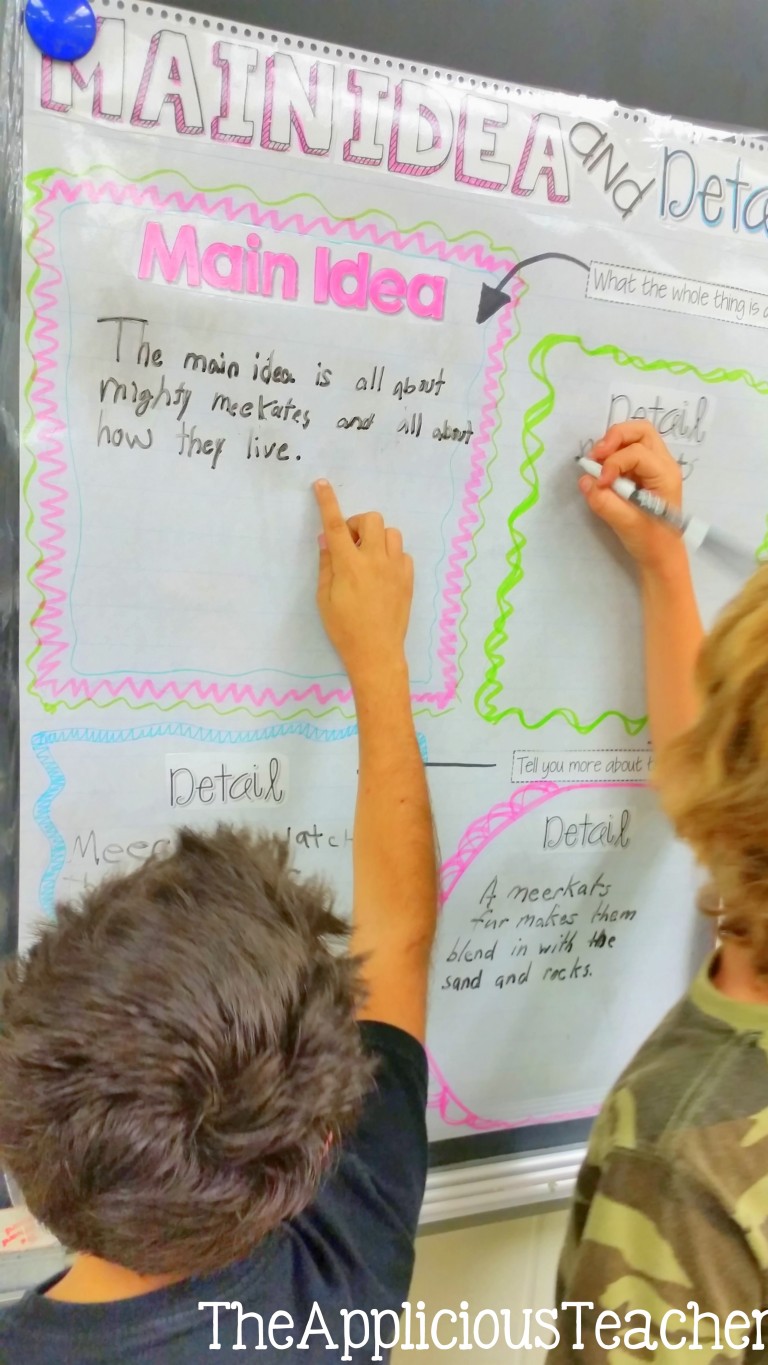 MAIN IDEA and
Main Idea
What the whole thing is
The main idea is all about
mighty meekates and all about
how they live.
Detail
Detail
Tell you more about
Detail
A meerkats
fur makes them
blend in with the
sand and rocks.
TheAppliciousTeacher